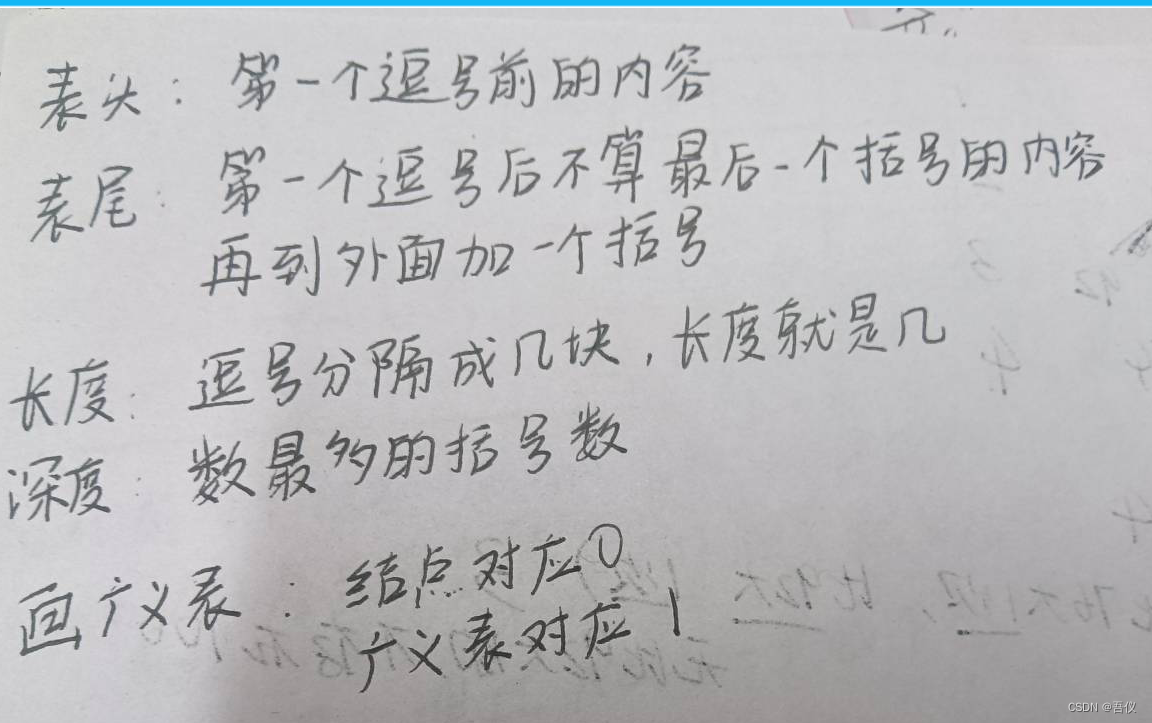 表头：第一个逗号前的内容
表尾：第一个逗号后不算最后一个括号的内容
再到外面加一个括号
长度：逗号分隔成几块，长度就是几
深度：数最多的括号数
画广义表：结点对应0
广义表对应1
CSDN @吾仪